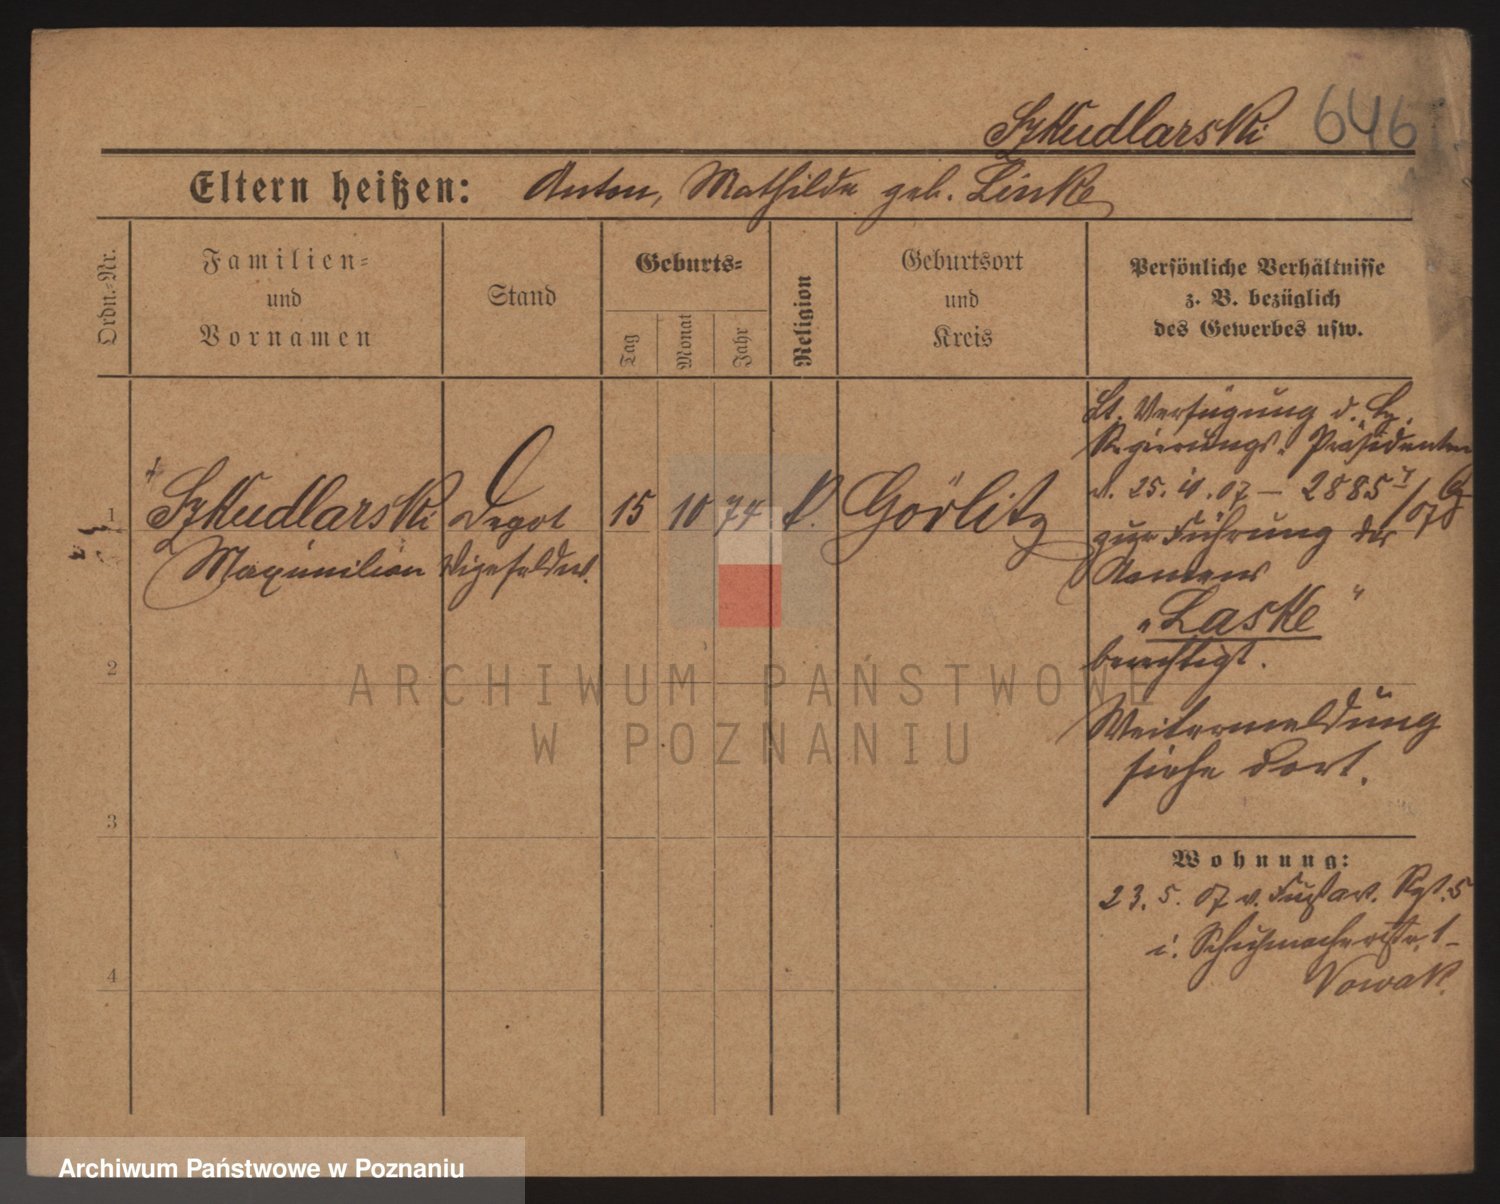 Szkudlarski 646
Eltern heißen: Anton, Mathilde geb. Linke
Ordn.-Nr.
Familien-
und
Vornamen
Stand
Geburts-
Tag
Monat
Jahr
Religion
Geburtsort
und
Kreis
Persönliche Verhältnisse
z. B. bezüglich
des Gewerbes usw.
1
Szkudlarski
Maximilian
Depot
Vizefeldw.
15
10
74
k.
Görlitz
Lt. Verfügung d.
Regierungs-Präsidenten
v. 25.10.07 – 2885
zur Führung des
Namens
„Laske"
berechtigt.
Weitermeldung
siehe dort.
2
3
4
Wohnung:
23.5.07 v. Fußart. Rgt. 5
i. Schuhmacherstr. 1
Nowak.
ARCHIWUM PAŃSTWOWE
W POZNANIU
Archiwum Państwowe w Poznaniu